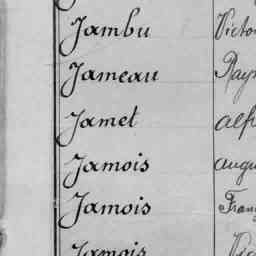 Jambu Victo
Jameau Ray
Jamet alf
Jamois augu
Jamois Fran
Jamois Vic